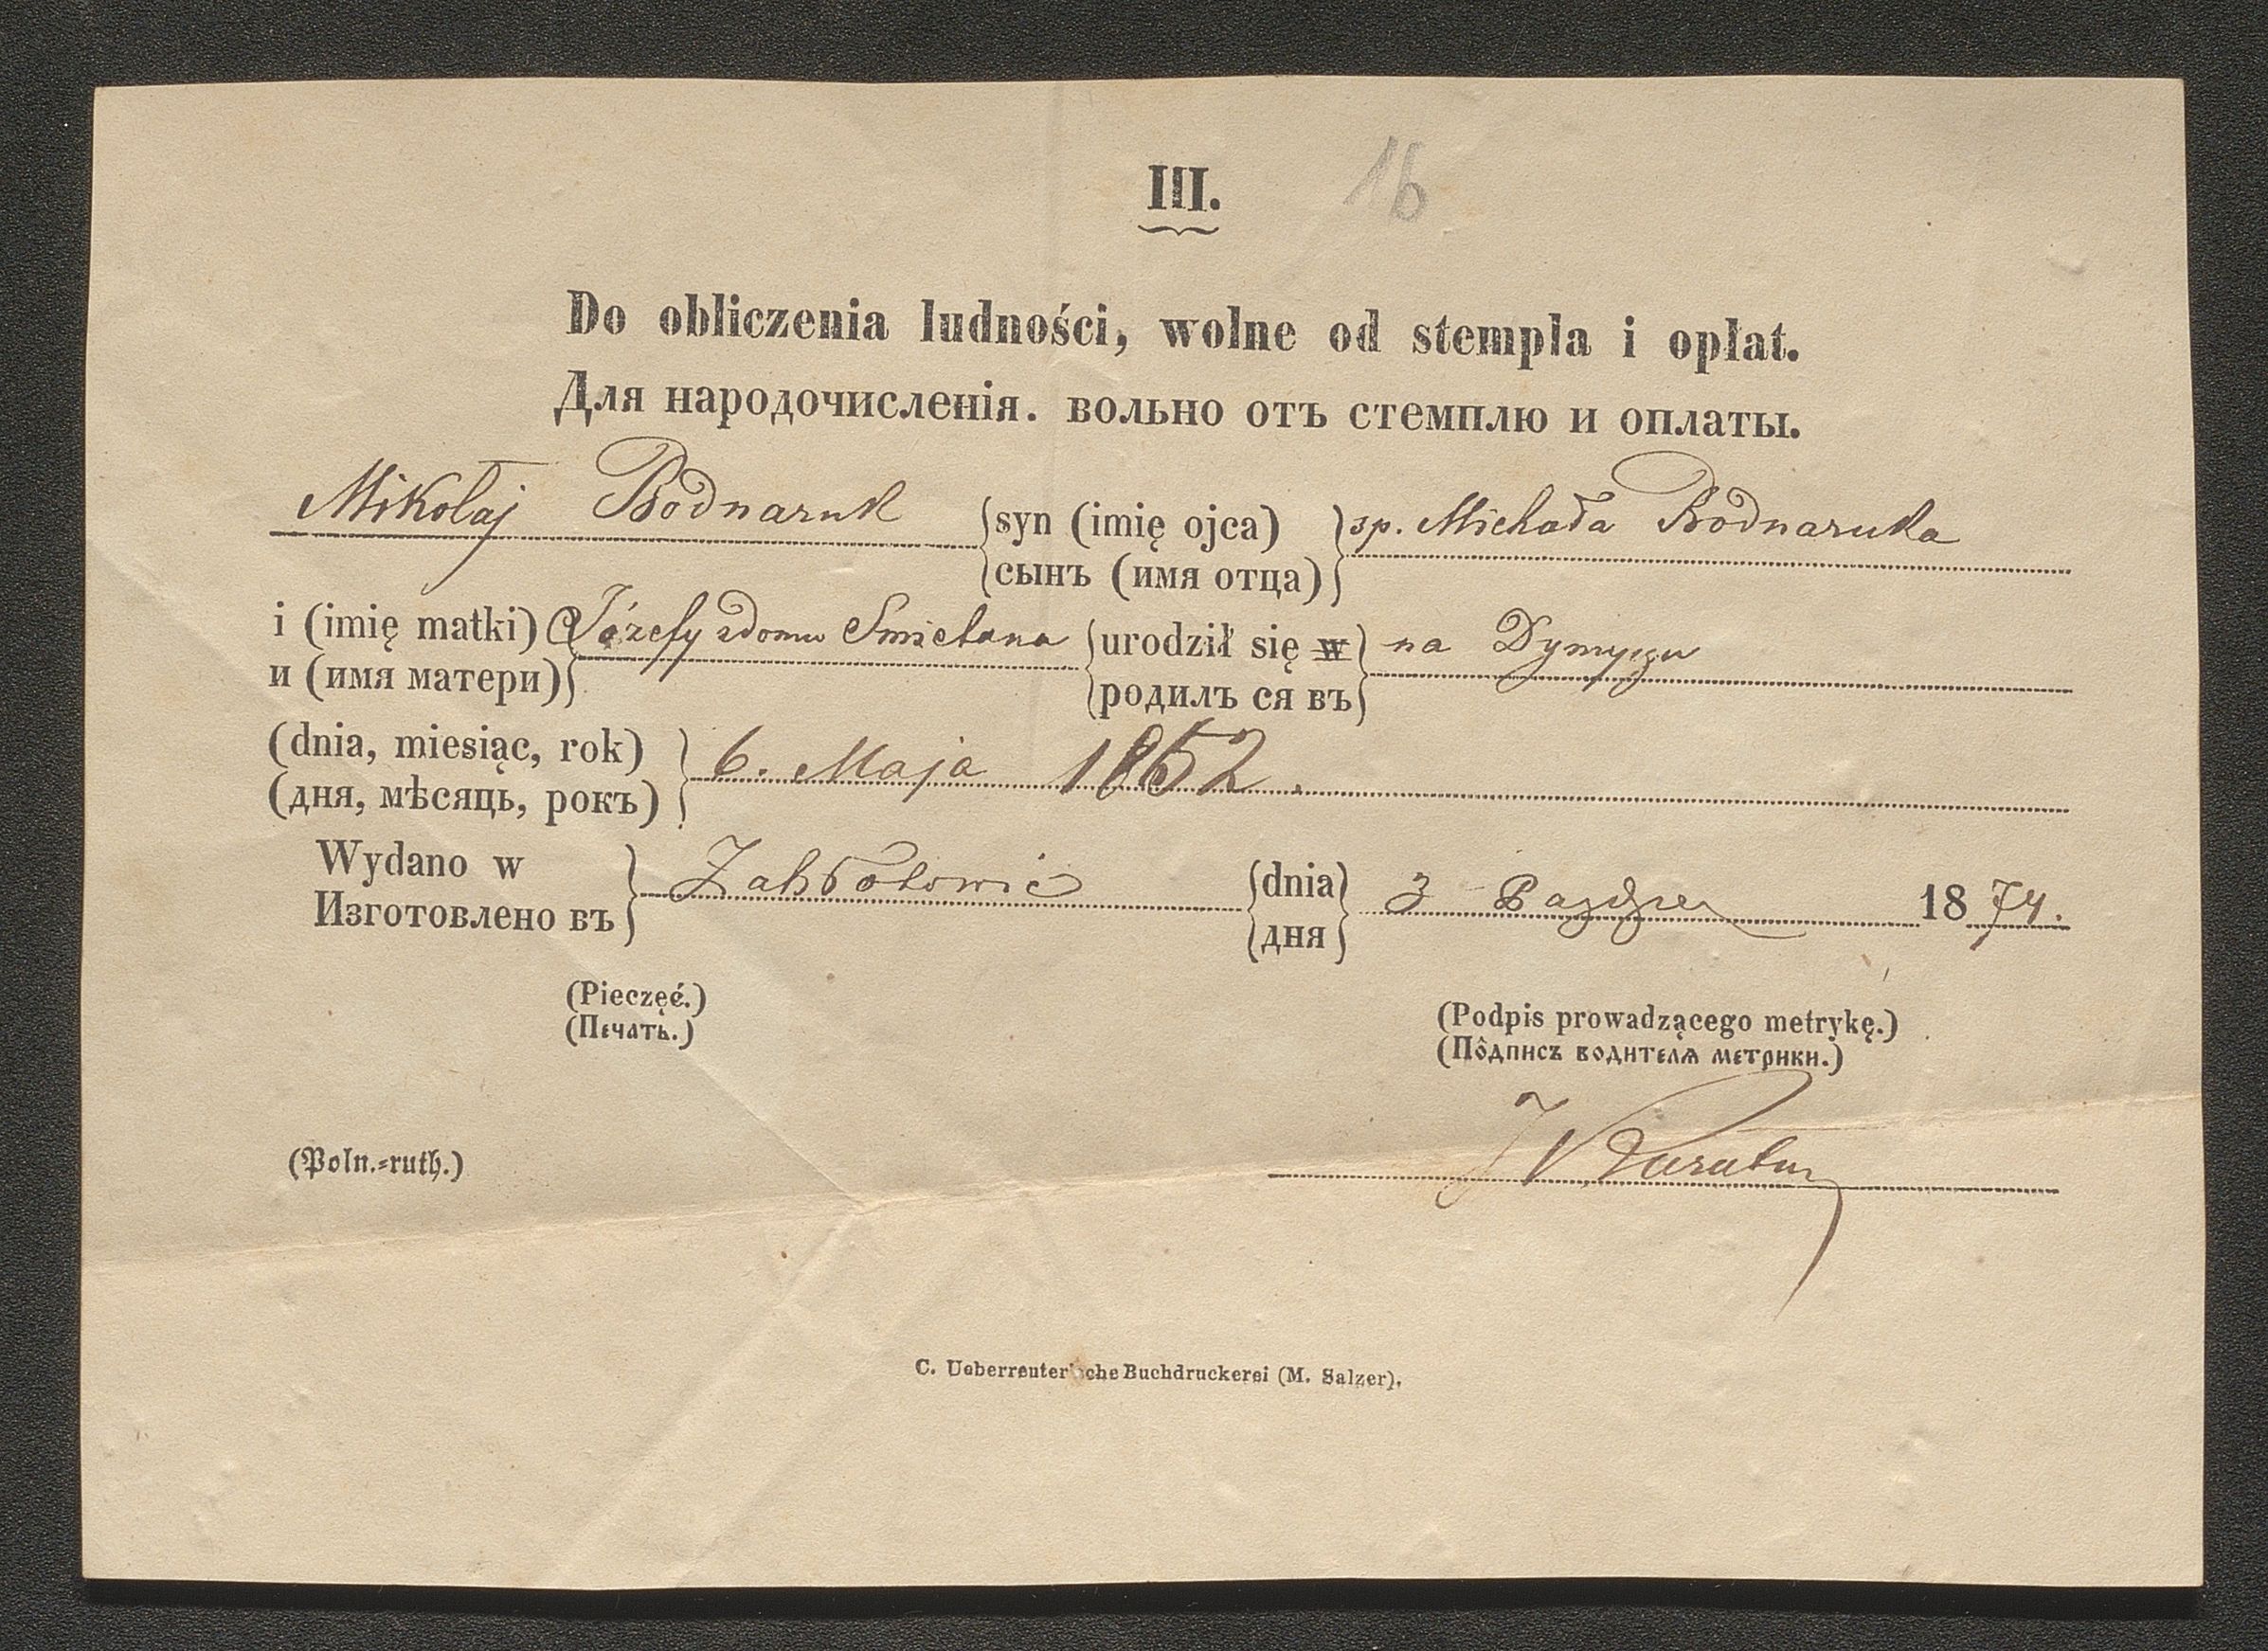 III. 16
Do obliczenia ludności, wolne od stempla i opłat.
Для народочисленія. вольно отъ стемплю и оплаты.
Mikołaj Bodnaruk syn (imię ojca) sp. Michała Bodnaruka
сынъ (имя отца)
i (imię matki) Józefy zdomu Smietana urodził się w na Dymyczu
и (имя матери) родилъ ся въ
(dnia, miesiąc, rok) 6. Maja 1852.
(дня, мѣсяць, рокъ)
Wydano w Zabłotowie dnia 3 Paźdzer 1874.
Изготовлено въ дня
(Pieczęć.)
(Печать.)
(Podpis prowadzącego metrykę.)
(Пôдписъ водителѧ метрики.)
(Poln.-ruth.)
C. Ueberreuter'sche Buchdruckerei (M. Salzer).